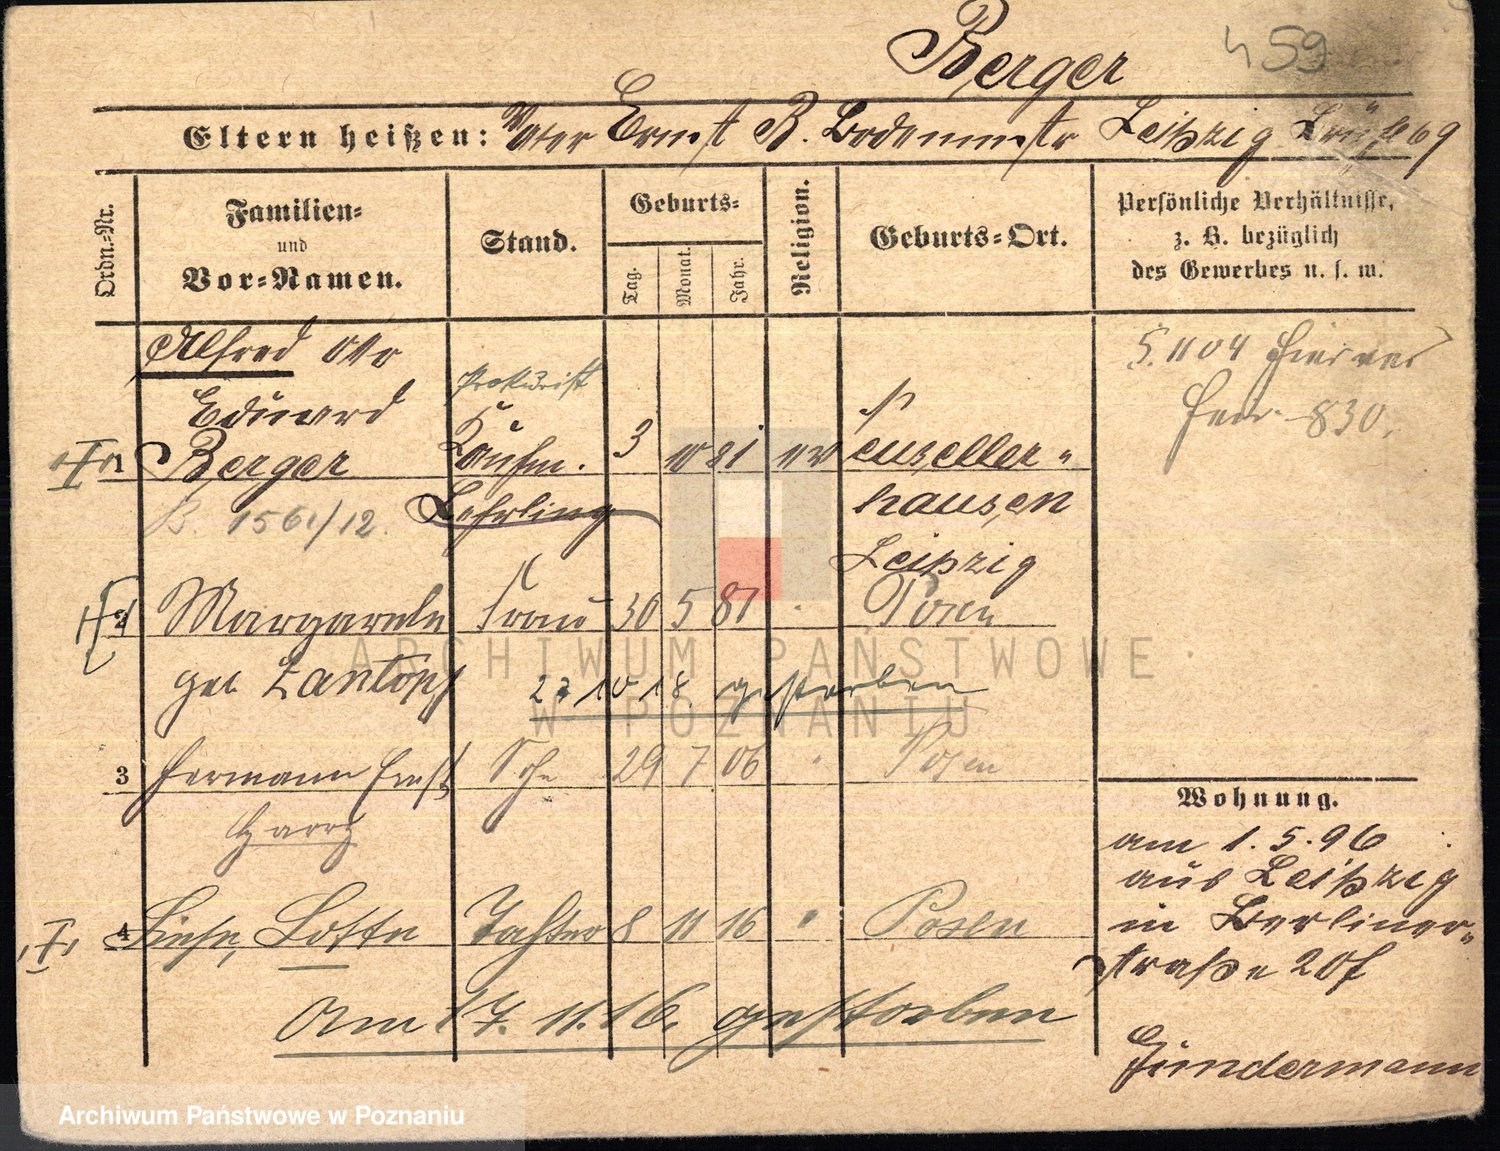 Berger
459
Eltern heißen: Vater Ernst B. Bodenmstr Leipzig 69
Ordn.-Nr.
Familien-
und
Vor-Namen.
Stand.
Geburts-
Tag.
Monat.
Jahr.
Religion.
Geburts-Ort.
Persönliche Verhältnisse,
z. B. bezüglich
des Gewerbes u. s. w.
Alfred Otto
Eduard
1 Berger
Prokurist
Kaufm.
Lehrling
3 10 81 ev
euseller-
hausen
Leipzig
B. 1561/12.
2 Margarete Frau 30 5 81 Posen
geb Zantopf
23 10 18 gestorben
3 Hermann Ernst Sohn 29 7 06 " Posen
Harry
4 Liese, Lotte Tochter 8 11 16 " Posen
am 17. 11. 16. gestorben
5. 11 04 hier
830.
Wohnung.
am 1. 5. 96
aus Leipzig
in Berliner-
straße 20f
Gündermann
ARCHIWUM PAŃSTWOWE
W POZNANIU
Archiwum Państwowe w Poznaniu